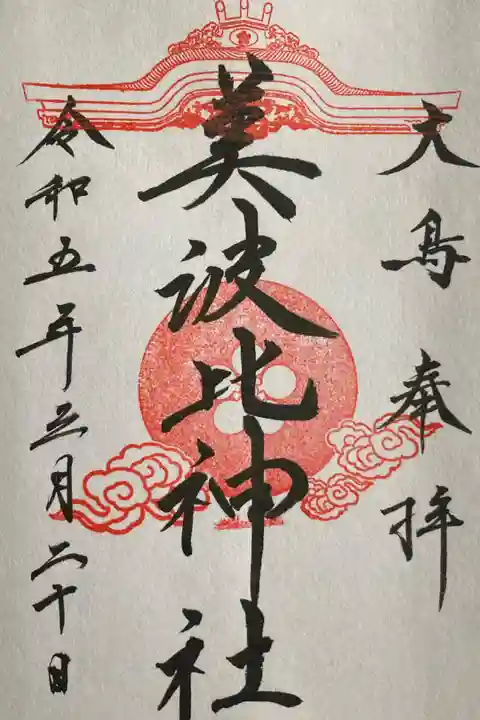 大鳥奉拝
美波比神社
令和五年三月二十日